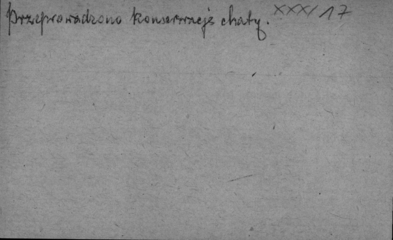 Przeprowadzono konserwację chaty. XXX/17